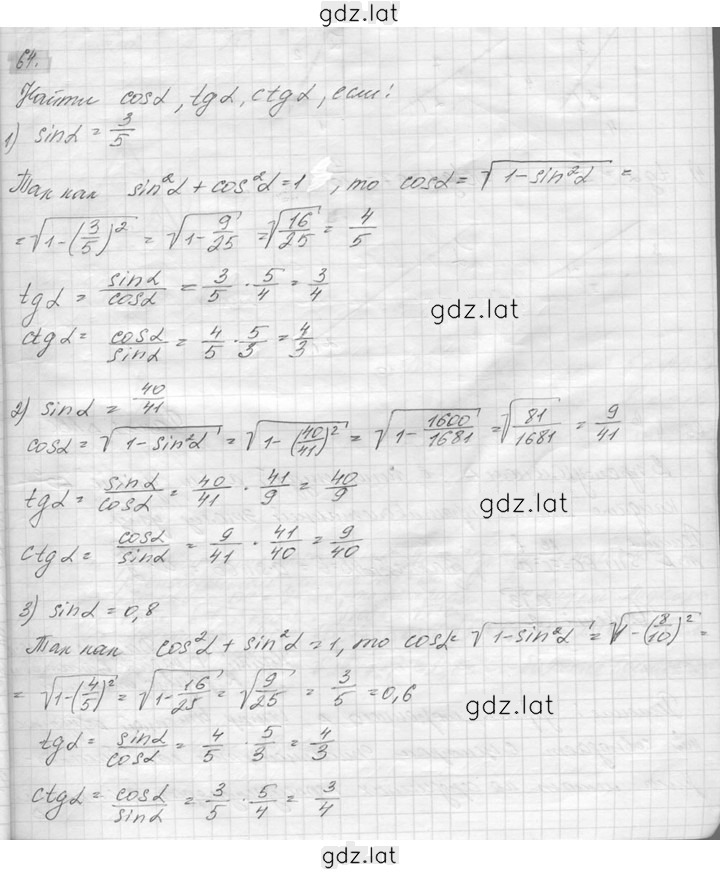 gdz.lat
64.
Найти cosα, tgα, ctgα, если:
1) sinα = 3/5
Так как sin²α + cos²α = 1, то cosα = √(1 - sin²α) =
= √(1 - (3/5)²) = √(1 - 9/25) = √(16/25) = 4/5
tgα = sinα/cosα = 3/5 · 5/4 = 3/4
gdz.lat
ctgα = cosα/sinα = 4/5 · 5/3 = 4/3
2) sinα = 40/41
cosα = √(1 - sin²α) = √(1 - (40/41)²) = √(1 - 1600/1681) = √(81/1681) = 9/41
tgα = sinα/cosα = 40/41 · 41/9 = 40/9
gdz.lat
ctgα = cosα/sinα = 9/41 · 41/40 = 9/40
3) sinα = 0,8
Так как cos²α + sin²α = 1, то cosα = √(1 - sin²α) = √(1 - (8/10)²) =
= √(1 - (4/5)²) = √(1 - 16/25) = √(9/25) = 3/5 = 0,6
gdz.lat
tgα = sinα/cosα = 4/5 · 5/3 = 4/3
ctgα = cosα/sinα = 3/5 · 5/4 = 3/4
gdz.lat